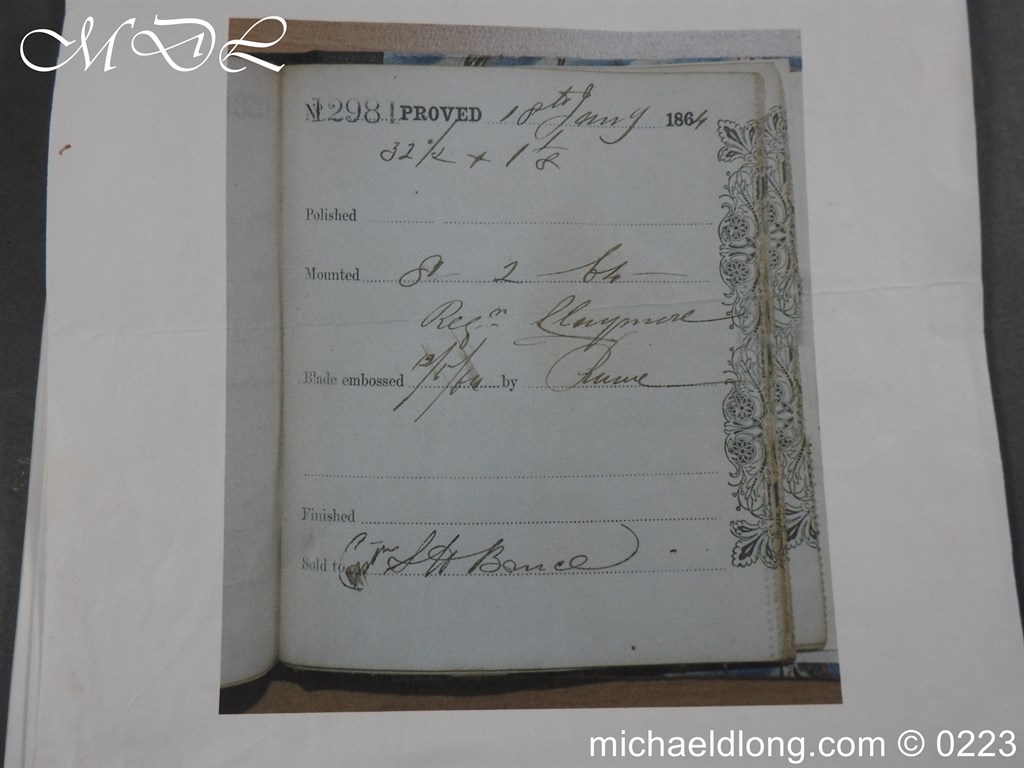 MDL
No 12981 PROVED 18th Jany 1864
32 1/2 x 1 1/8
Polished
Mounted 8 - 2 - 64
Regn Claymore
Blade embossed by
Finished
Sold to S H Bruce
michaeldlong.com © 0223